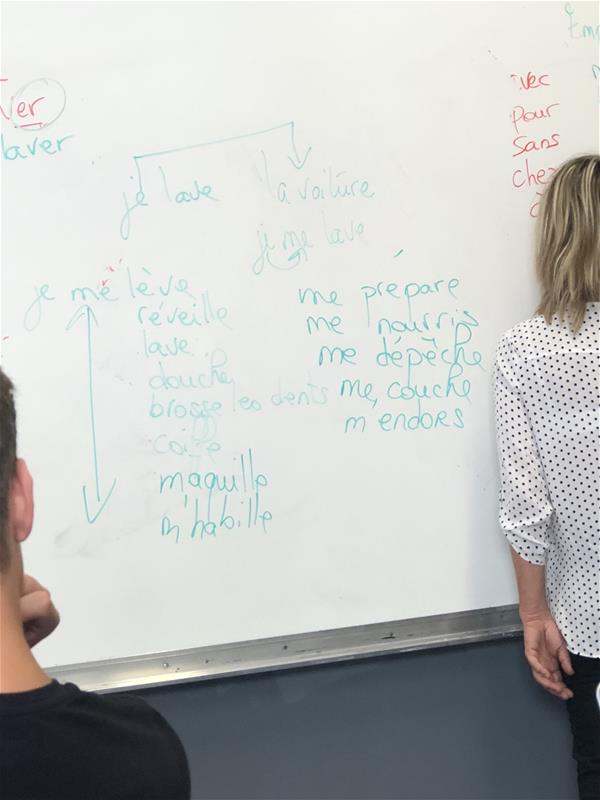 er
laver
je lave la voiture
je me lave
je me lève
réveille
lave
douche
brosse les dents
coiffe
maquille
m'habille
me prépare
me nourris
me dépêche
me couche
m'endors
avec
pour
sans
chez